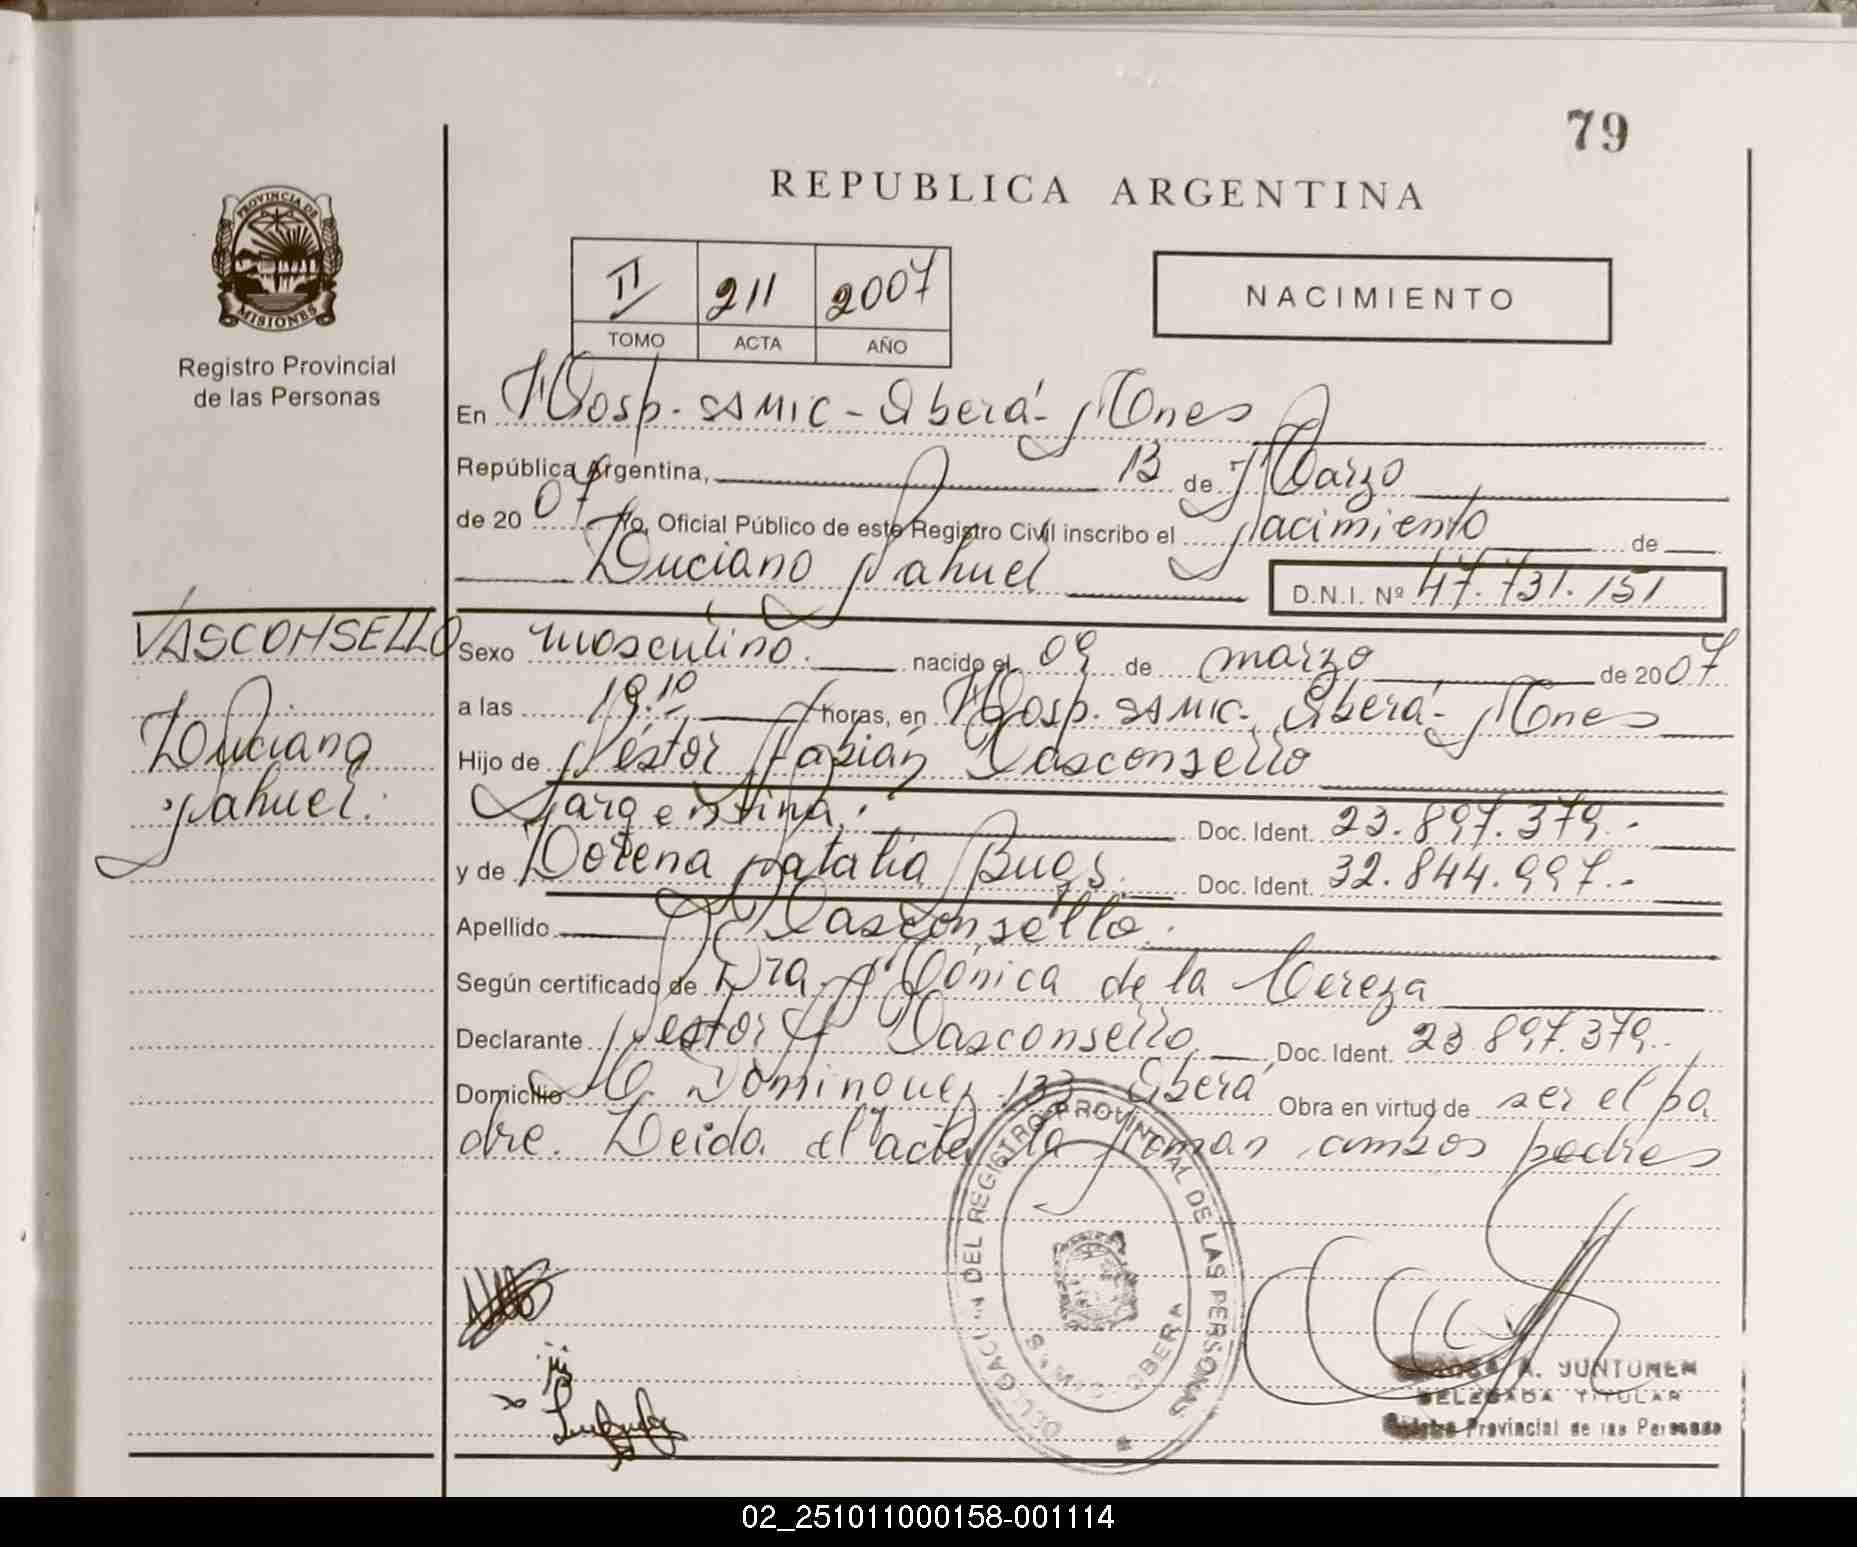 79
REPUBLICA ARGENTINA
PROVINCIA DE
MISIONES
Registro Provincial
de las Personas
II 211 2007
TOMO ACTA AÑO
NACIMIENTO
En Hosp. SAMIC - Oberá - Mnes
República Argentina, 13 de Marzo
de 20 07 Yo, Oficial Público de este Registro Civil inscribo el Nacimiento de
Luciano Nahuel D.N.I. Nº 47.731.151
VASCONSELLO
Luciano
Nahuel.
Sexo masculino. nacido el 09 de marzo de 20 07
a las 19:10 horas, en Hosp. SAMIC. Oberá - Mnes
Hijo de Néstor Fabián Vasconsello
Argentina. Doc. Ident. 23.897.379.-
y de Lorena Natalia Bugs. Doc. Ident. 32.844.997.-
Apellido Vasconsello.
Según certificado de Dra. Mónica de la Cereza
Declarante Néstor F. Vasconsello Doc. Ident. 23.897.379.-
Domicilio M. Domingues 133 Oberá Obra en virtud de ser el pa
dre. Leida el acta la firman ambos padres
DEL REGISTRO PROVINCIAL DE LAS PERSONAS
OBERA
A. JUNTUNEN
DELEGADA TITULAR
Registro Provincial de las Personas
02_251011000158-001114